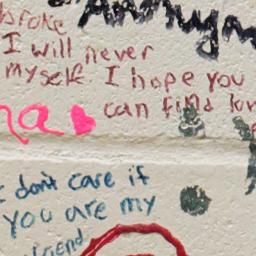 broke
I will never
myself. I hope you
can find lov
I don't care if
you are my
friend